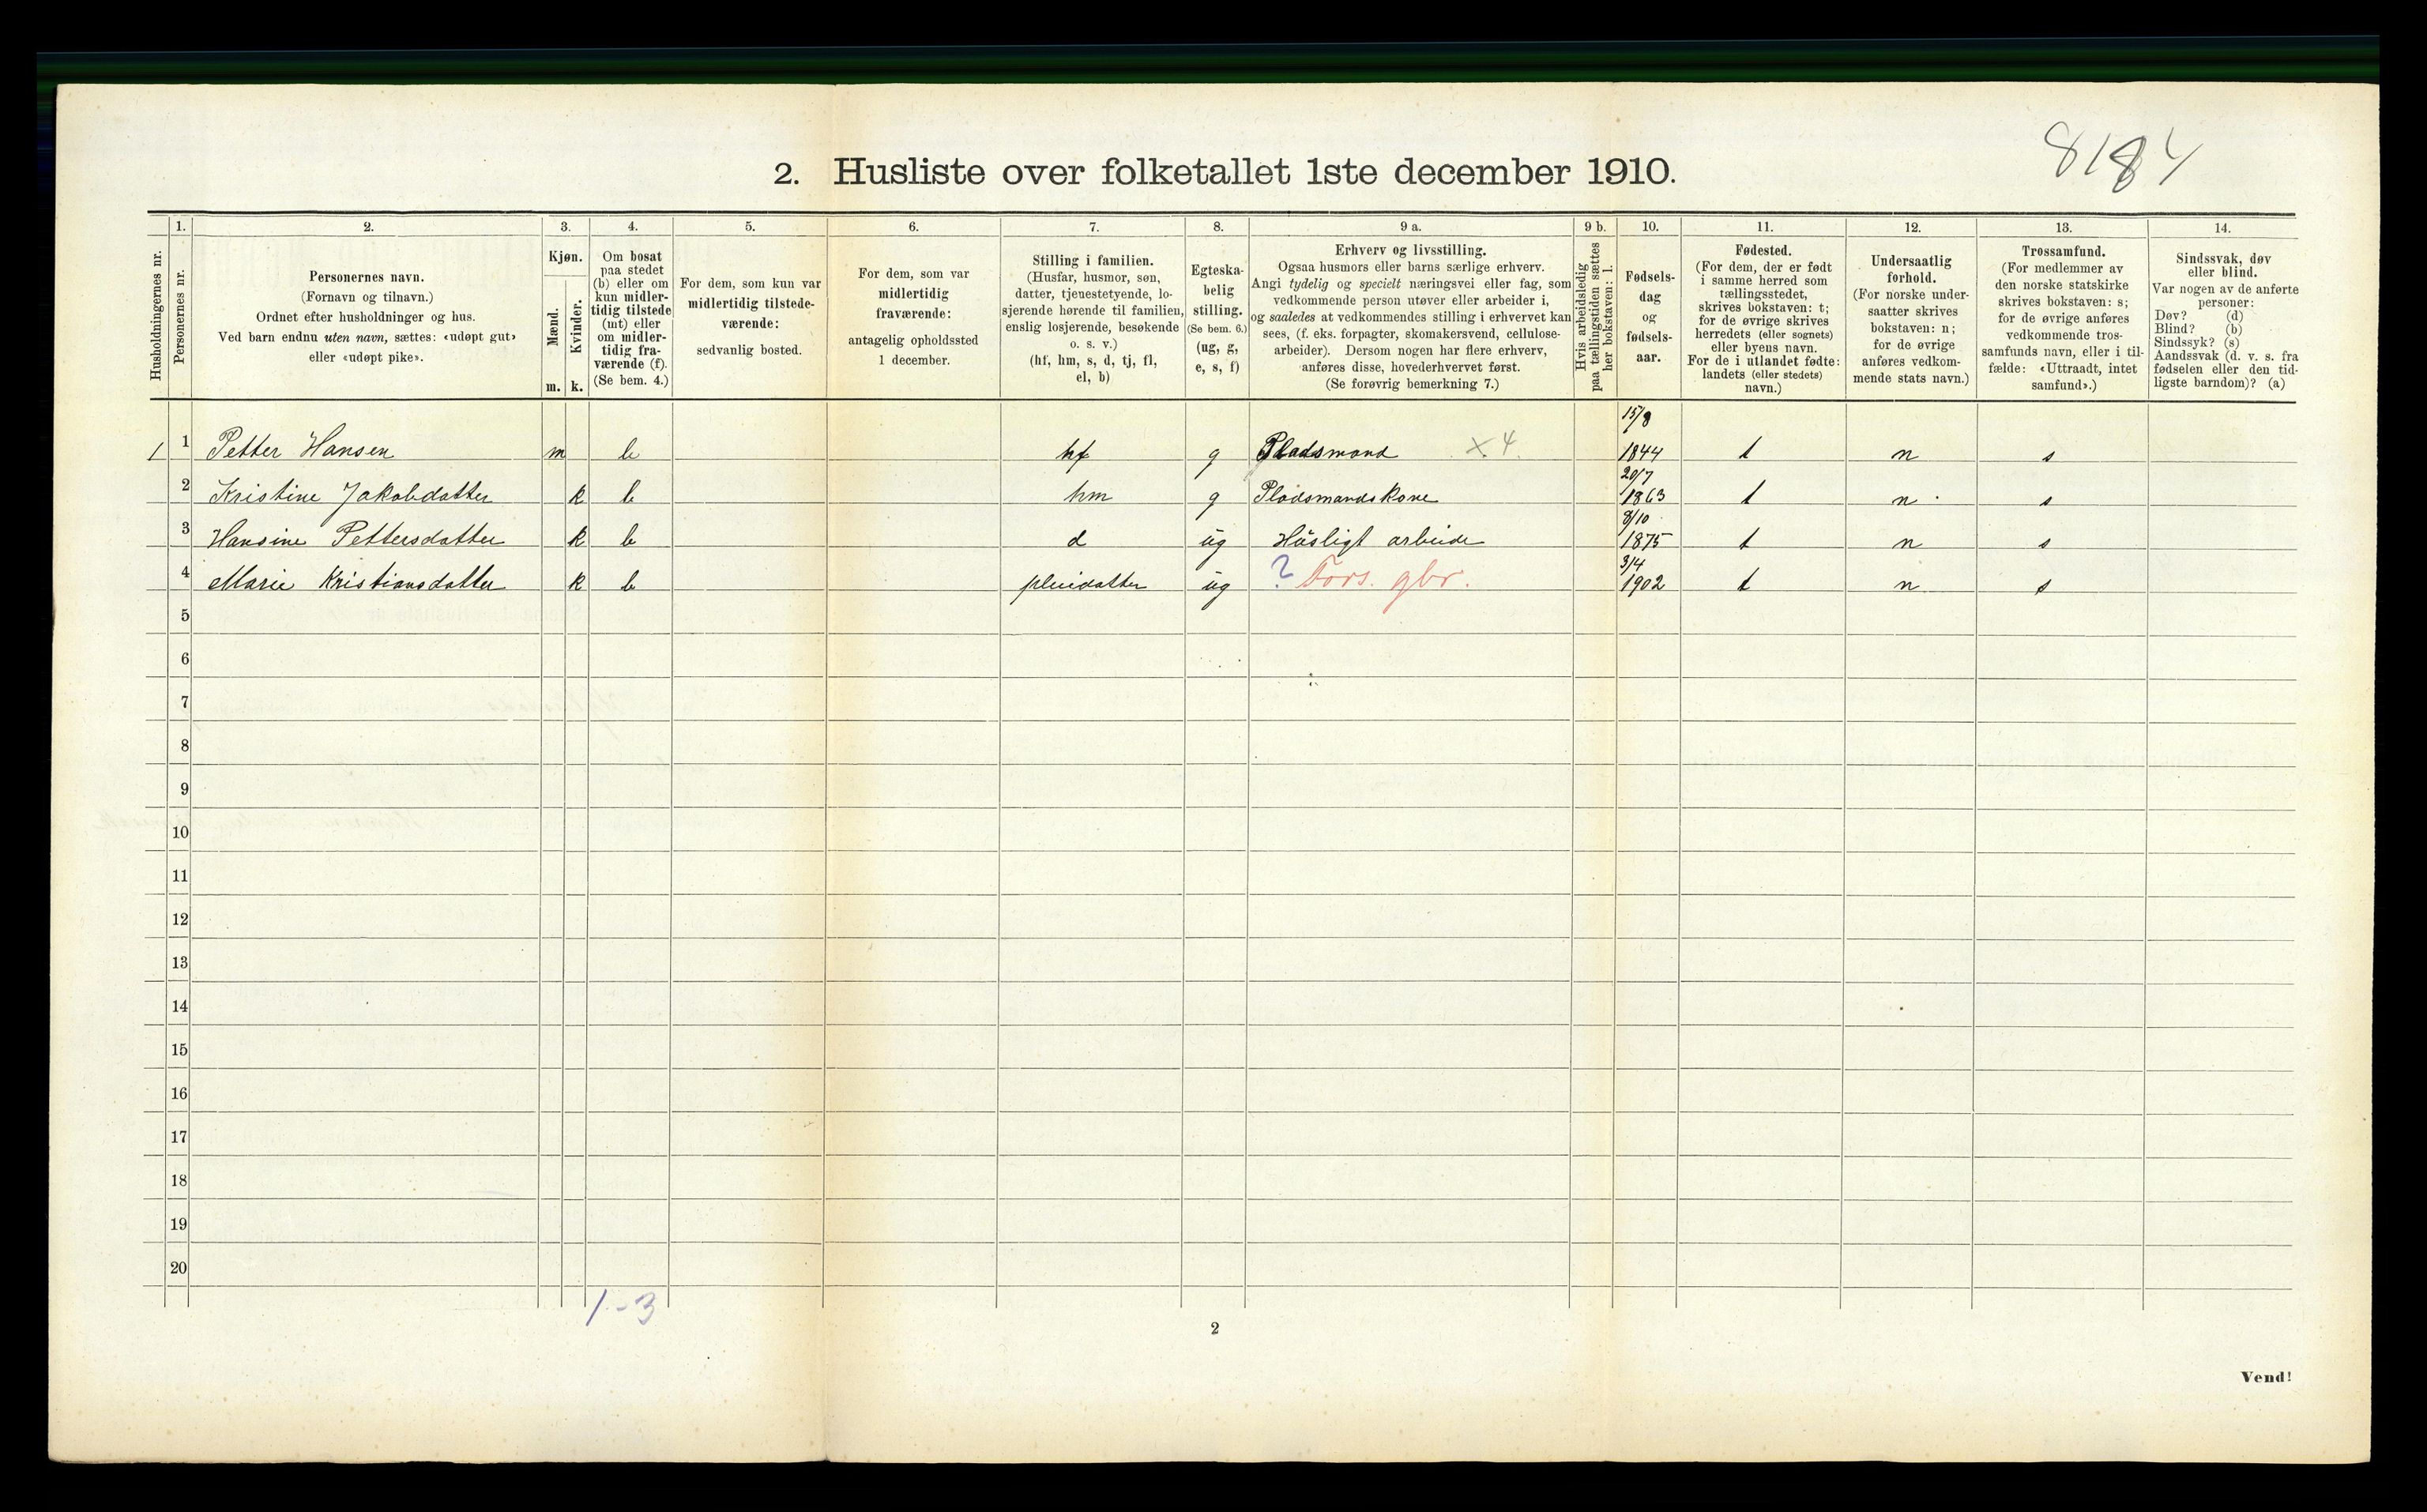 8184
2. Husliste over folketallet 1ste december 1910.
Husholdningernes nr.
1.
Personernes nr.
2.
Personernes navn.
(Fornavn og tilnavn.)
Ordnet efter husholdninger og hus.
Ved barn endnu uten navn, sættes: «udøpt gut»
eller «udøpt pike».
3.
Kjøn.
Mænd.
m.
Kvinder.
k.
4.
Om bosat
paa stedet
(b) eller om
kun midler-
tidig tilstede
(mt) eller
om midler-
tidig fra-
værende (f).
(Se bem. 4.)
5.
For dem, som kun var
midlertidig tilstede-
værende:
sedvanlig bosted.
6.
For dem, som var
midlertidig
fraværende:
antagelig opholdssted
1 december.
7.
Stilling i familien.
(Husfar, husmor, søn,
datter, tjenestetyende, lo-
sjerende hørende til familien,
enslig losjerende, besøkende
o. s. v.)
(hf, hm, s, d, tj, fl,
el, b)
8.
Egteska-
belig
stilling.
(Se bem. 6.)
(ug, g,
e, s, f)
9 a.
Erhverv og livsstilling.
Ogsaa husmors eller barns særlige erhverv.
Angi tydelig og specielt næringsvei eller fag, som
vedkommende person utøver eller arbeider i,
og saaledes at vedkommendes stilling i erhvervet kan
sees, (f. eks. forpagter, skomakersvend, cellulose-
arbeider). Dersom nogen har flere erhverv,
anføres disse, hovederhvervet først.
(Se forøvrig bemerkning 7.)
9 b.
Hvis arbeidsledig
paa tællingstiden sættes
her bokstaven: l.
10.
Fødsels-
dag
og
fødsels-
aar.
11.
Fødested.
(For dem, der er født
i samme herred som
tællingsstedet,
skrives bokstaven: t;
for de øvrige skrives
herredets (eller sognets)
eller byens navn.
For de i utlandet fødte:
landets (eller stedets)
navn.)
12.
Undersaatlig
forhold.
(For norske under-
saatter skrives
bokstaven: n;
for de øvrige
anføres vedkom-
mende stats navn.)
13.
Trossamfund.
(For medlemmer av
den norske statskirke
skrives bokstaven: s;
for de øvrige anføres
vedkommende tros-
samfunds navn, eller i til-
fælde: «Uttraadt, intet
samfund».)
14.
Sindssvak, døv
eller blind.
Var nogen av de anførte
personer:
Døv? (d)
Blind? (b)
Sindssyk? (s)
Aandssvak (d. v. s. fra
fødselen eller den tid-
ligste barndom)? (a)
1 1 Petter Hansen m b hf g Pladsmand X 4. 15/8 1844 t n s
2 Kristine Jakobdatter k b hm g Pladsmandskone 20/7 1863 t n s
3 Hansine Pettersdatter k b d ug Husligt arbeide 8/10 1875 t n s
4 Marie Kristiansdatter k b pleidatter ug ? Fors. gbr. 3/4 1902 t n s
5
6
7
8
9
10
11
12
13
14
15
16
17
18
19
20
1-3
2
Vend!